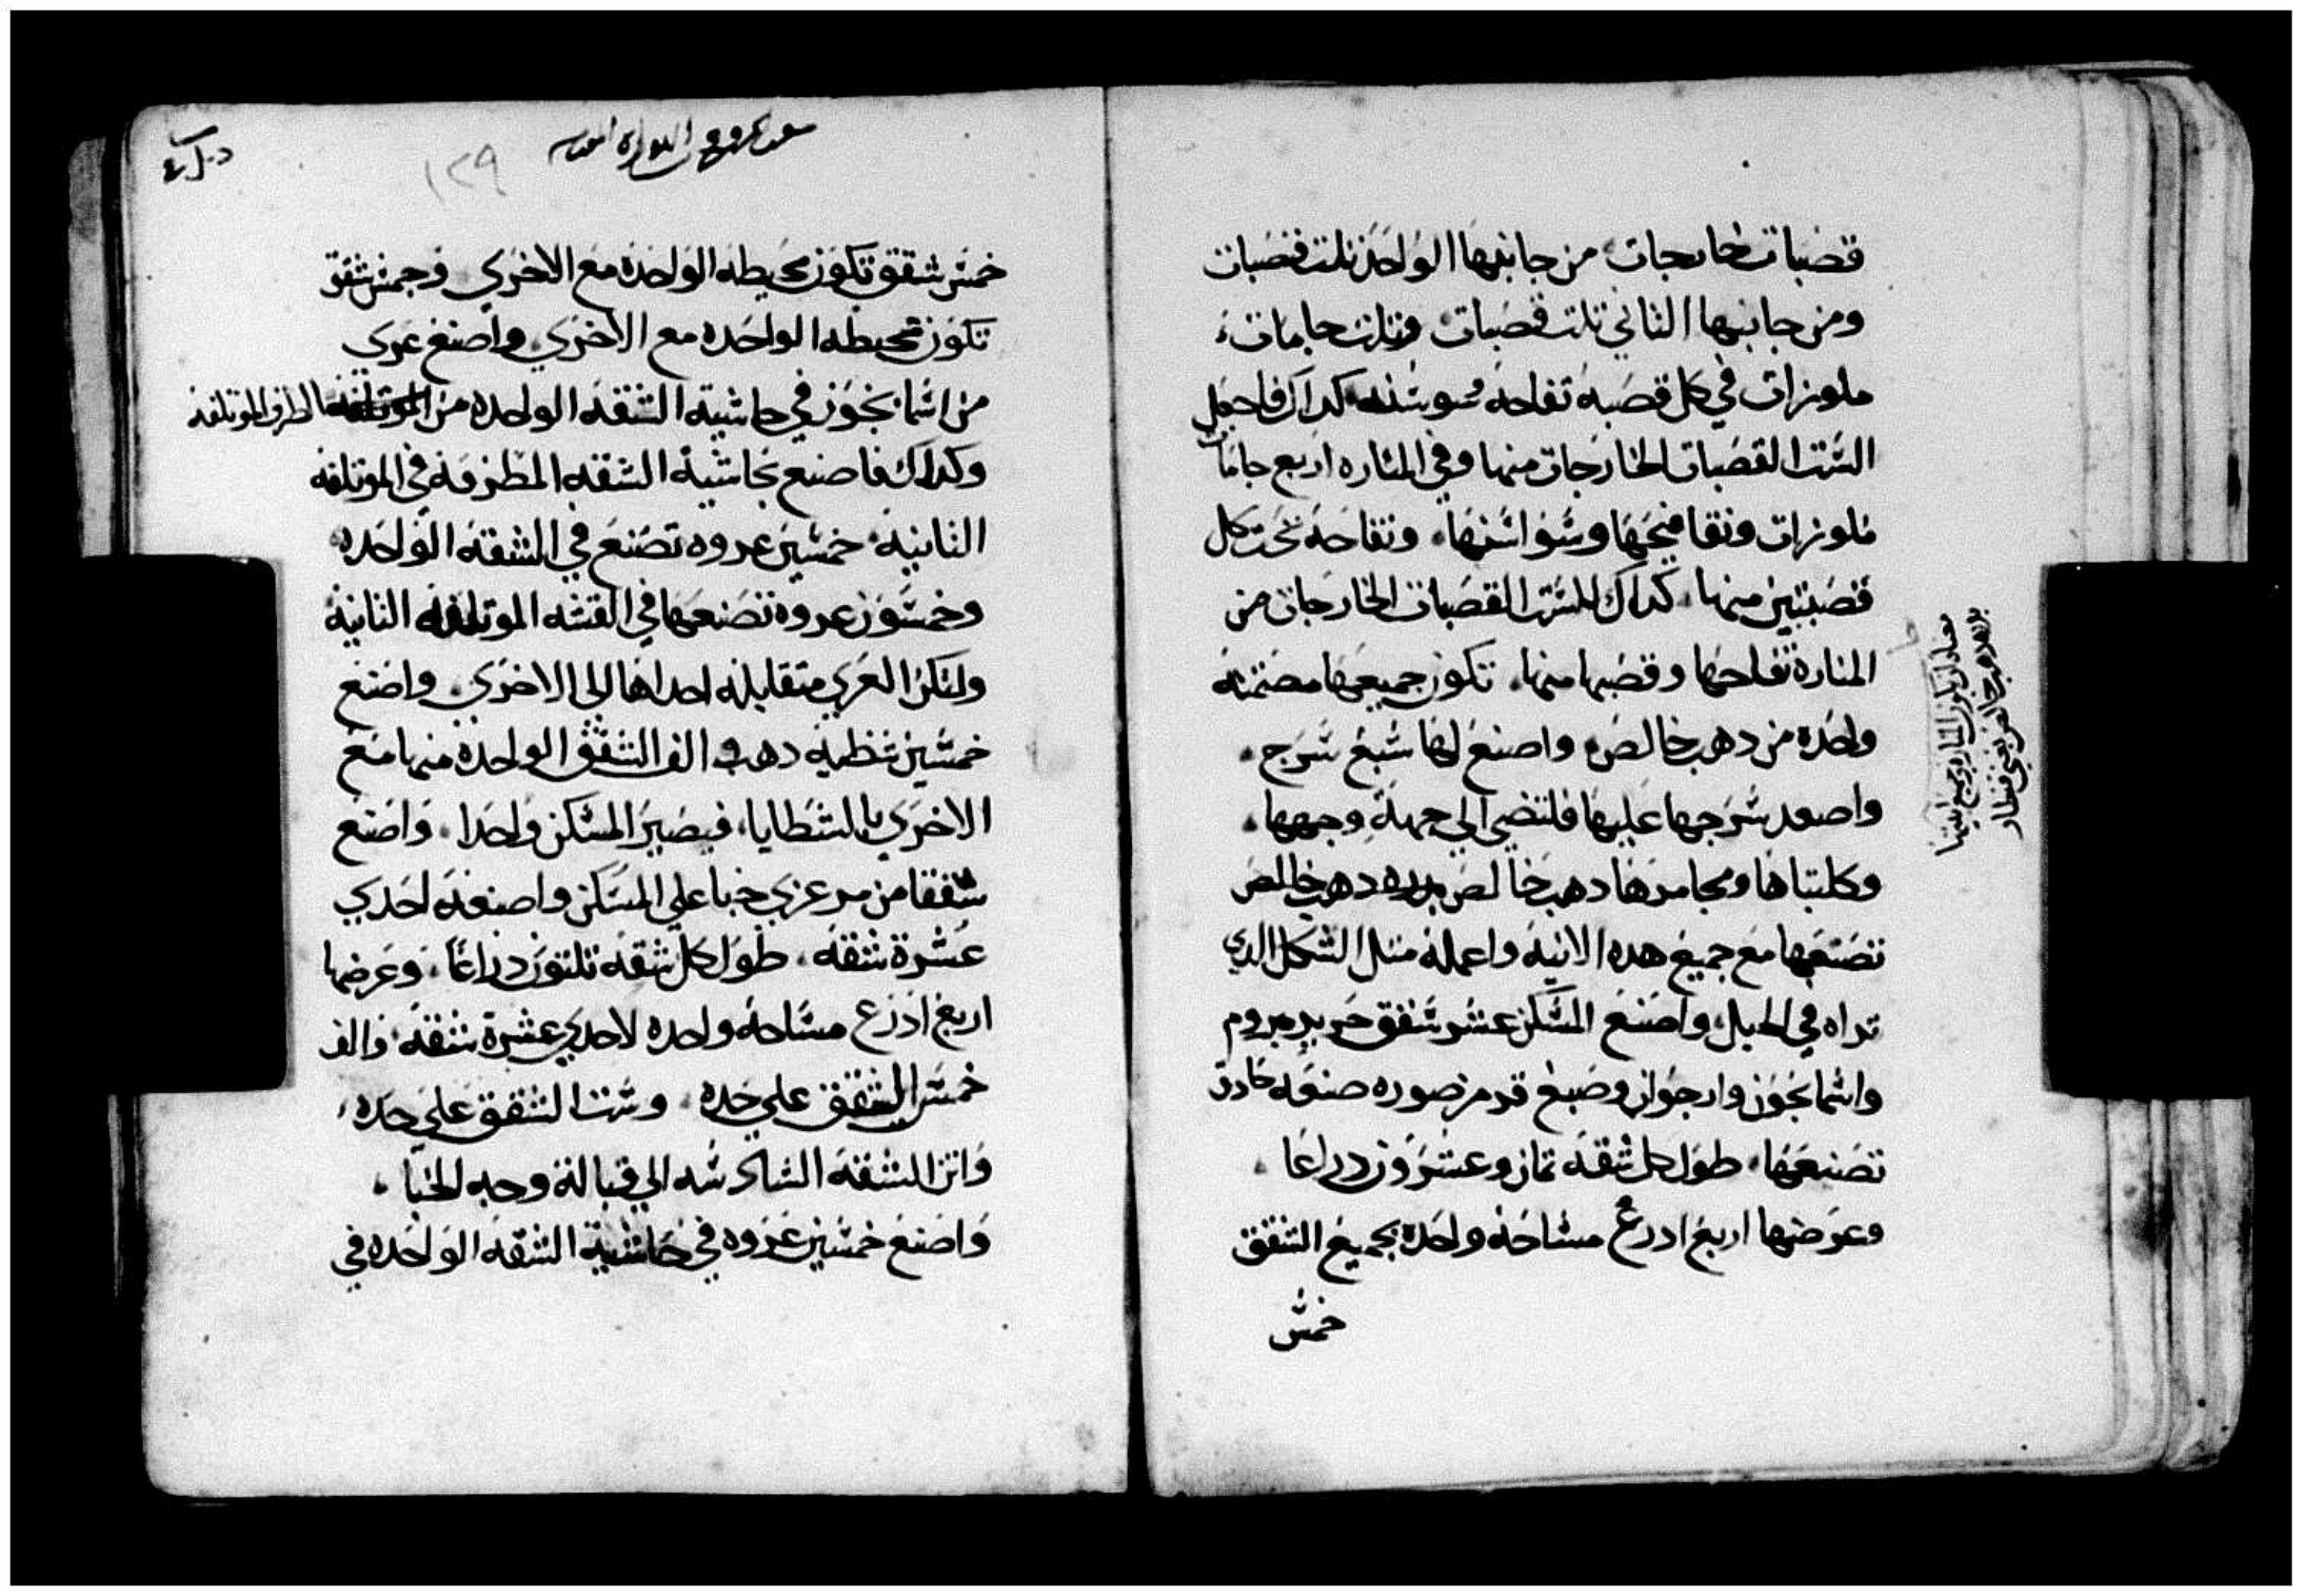 قصبات خارجات من جانبها الواحد تلت قصبات
ومن جانبها التاني تلت قصبات وتلت جامات
ملوزات في كل قصبه تفاحه وسوسنه كداك فاجعل
الست القصبات الخارجات منها وفي المناره اربع جامات
ملوزات وتفافيحها وسواسنها وتفاحه تحت كل
قصبتين منها كداك للست القصبات الخارجات من
المنارة تفاحها وقصبها منها تكون جميعها مصمته
واحدة من دهب خالص واصنع لها سبع سرج
واصعد سرجها عليها فلتضي الي جهة وجهها
وكلبتاها ومجامرها دهب خالص بدره دهب خالص
تصنعها مع جميع هده الانيه واعمله متل الشكل الدي
تراه في الجبل واصنع المسكن عشر شقق حرير مبروم
واسمانجون وارجوان وصبغ قرمز صوره صنعه حادق
تصنعها طول كل شقه تمان وعشرون دراعا
وعرضها اربع ادرع مساحه واحدة بجميع الشقق
خمس
خمس شقق تكون محيطه الواحدة مع الاخري وخمس شقق
تكون محيطه الواحده مع الاخري واصنع عري
من اسمانجون في حاشية الشقه الواحده من الطرف الموتلفه
وكداك فاصنع بحاشية الشقه المطرفه في الموتلفه
التانيه خمسين عروه تصنع في الشقه الواحده
وخمسون عروه تصنعها في الشقه الموتلفه التانية
ولتكن العري متقابله احداها الي الاخري واصنع
خمسين شظيه دهب والف الشقق الواحدة منها مع
الاخري بالشظايا فيصير المسكن واحدا واصنع
شققا من مرعزي خبا علي المسكن واصنعه احدي
عشرة شقه طول كل شقه تلتون دراعا وعرضها
اربع ادرع مساحه واحده لاحدي عشرة شقه والف
خمس الشقق علي حده وست الشقق علي حده
واتن الشقه السادسه الي قبالة وجه الخبا
واصنع خمسين عروه في حاشية الشقه الواحده في
١٢٩